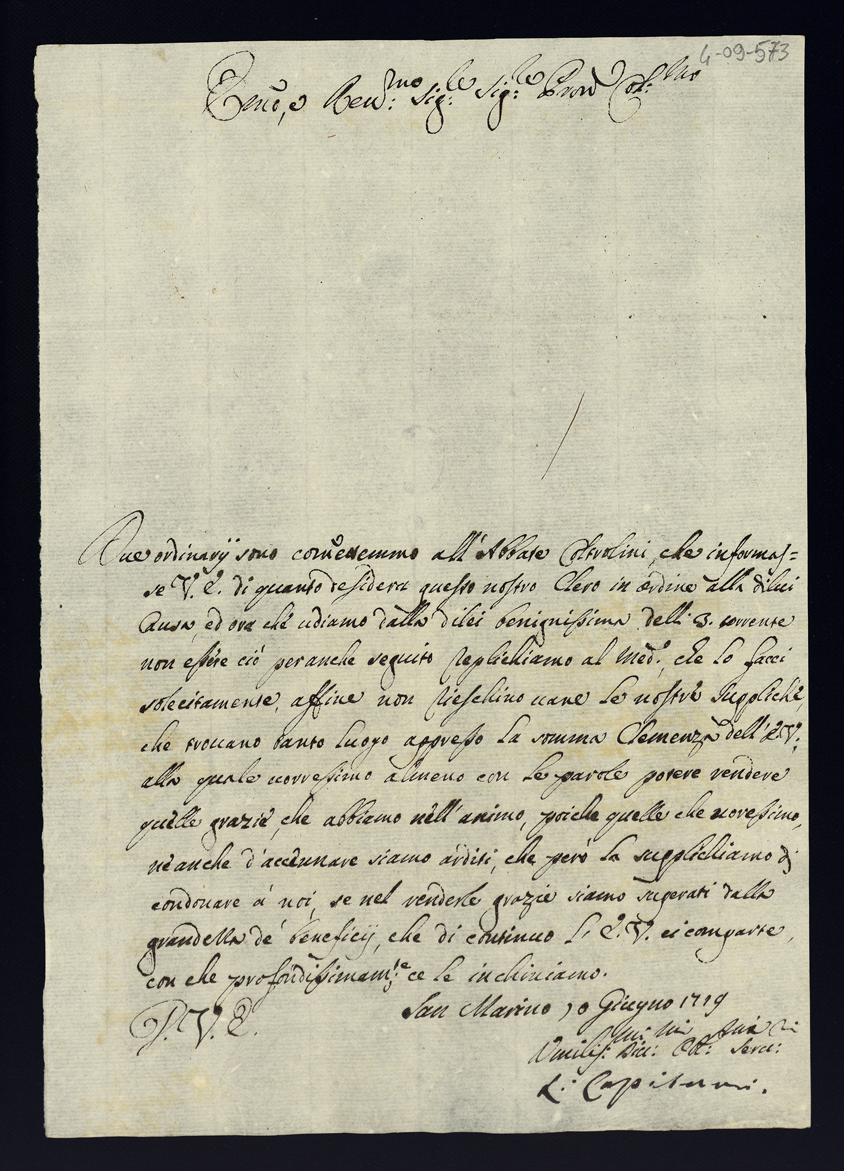 4-09-573
Emo, e Reu:mo Sig:le Sig:le Prōn Col:mo
Due ordinarij sono comettemmo all'Abbate Coltrolini, che informas=
se V. E. di quanto desidera questo nostro Clero in ordine alla dilei
Causa, ed ora ché udiamo dalla dilei benignissima delli 3. corrente
non essere ciò peranche seguito replichiamo al Med:o, che lo facci
solecitamente, affine non rieschino uane le nostre suppliche,
che trouano tanto luogo appresso la somma Clemenza dell'E.V:
alla quale uorressimo almeno con le parole potere rendere
quelle grazie, che abbiamo nell'animo, poiche quelle che uoressimo,
ne anche d'accennare siamo arditi, che peró la supplichiamo di
condonare á noi, se nel renderle grazie siamo superati dalla
grandezza de' beneficij, che di continuo l'E.V. ci comparte,
con che profondissimam:te ce le inchiniamo.
San Marino 10 Giugno 1719
D. V. E.
Vmiliss:mi Diu:mi Obl: Seru:ri
Li Capitani.